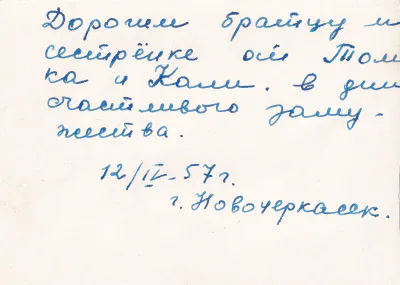 Дорогим братцу и
сестрёнке от Том
ка и Кали. в дни
счастливого заму-
жества.
12/IV-57 г.
г. Новочеркасск.